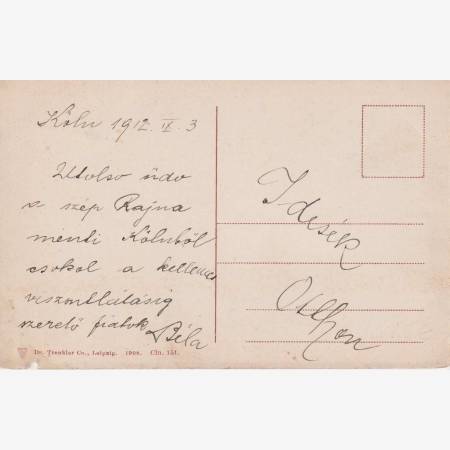 Köln 1912. II. 3
Utolso üdv
a szép Rajna
menti Kölnből
csokol a kellemes
viszontlátásig
szerető fiatok Béla
Idesék
Otthon
Dr. Trenkler Co., Leipzig. 1908. Cln. 151.